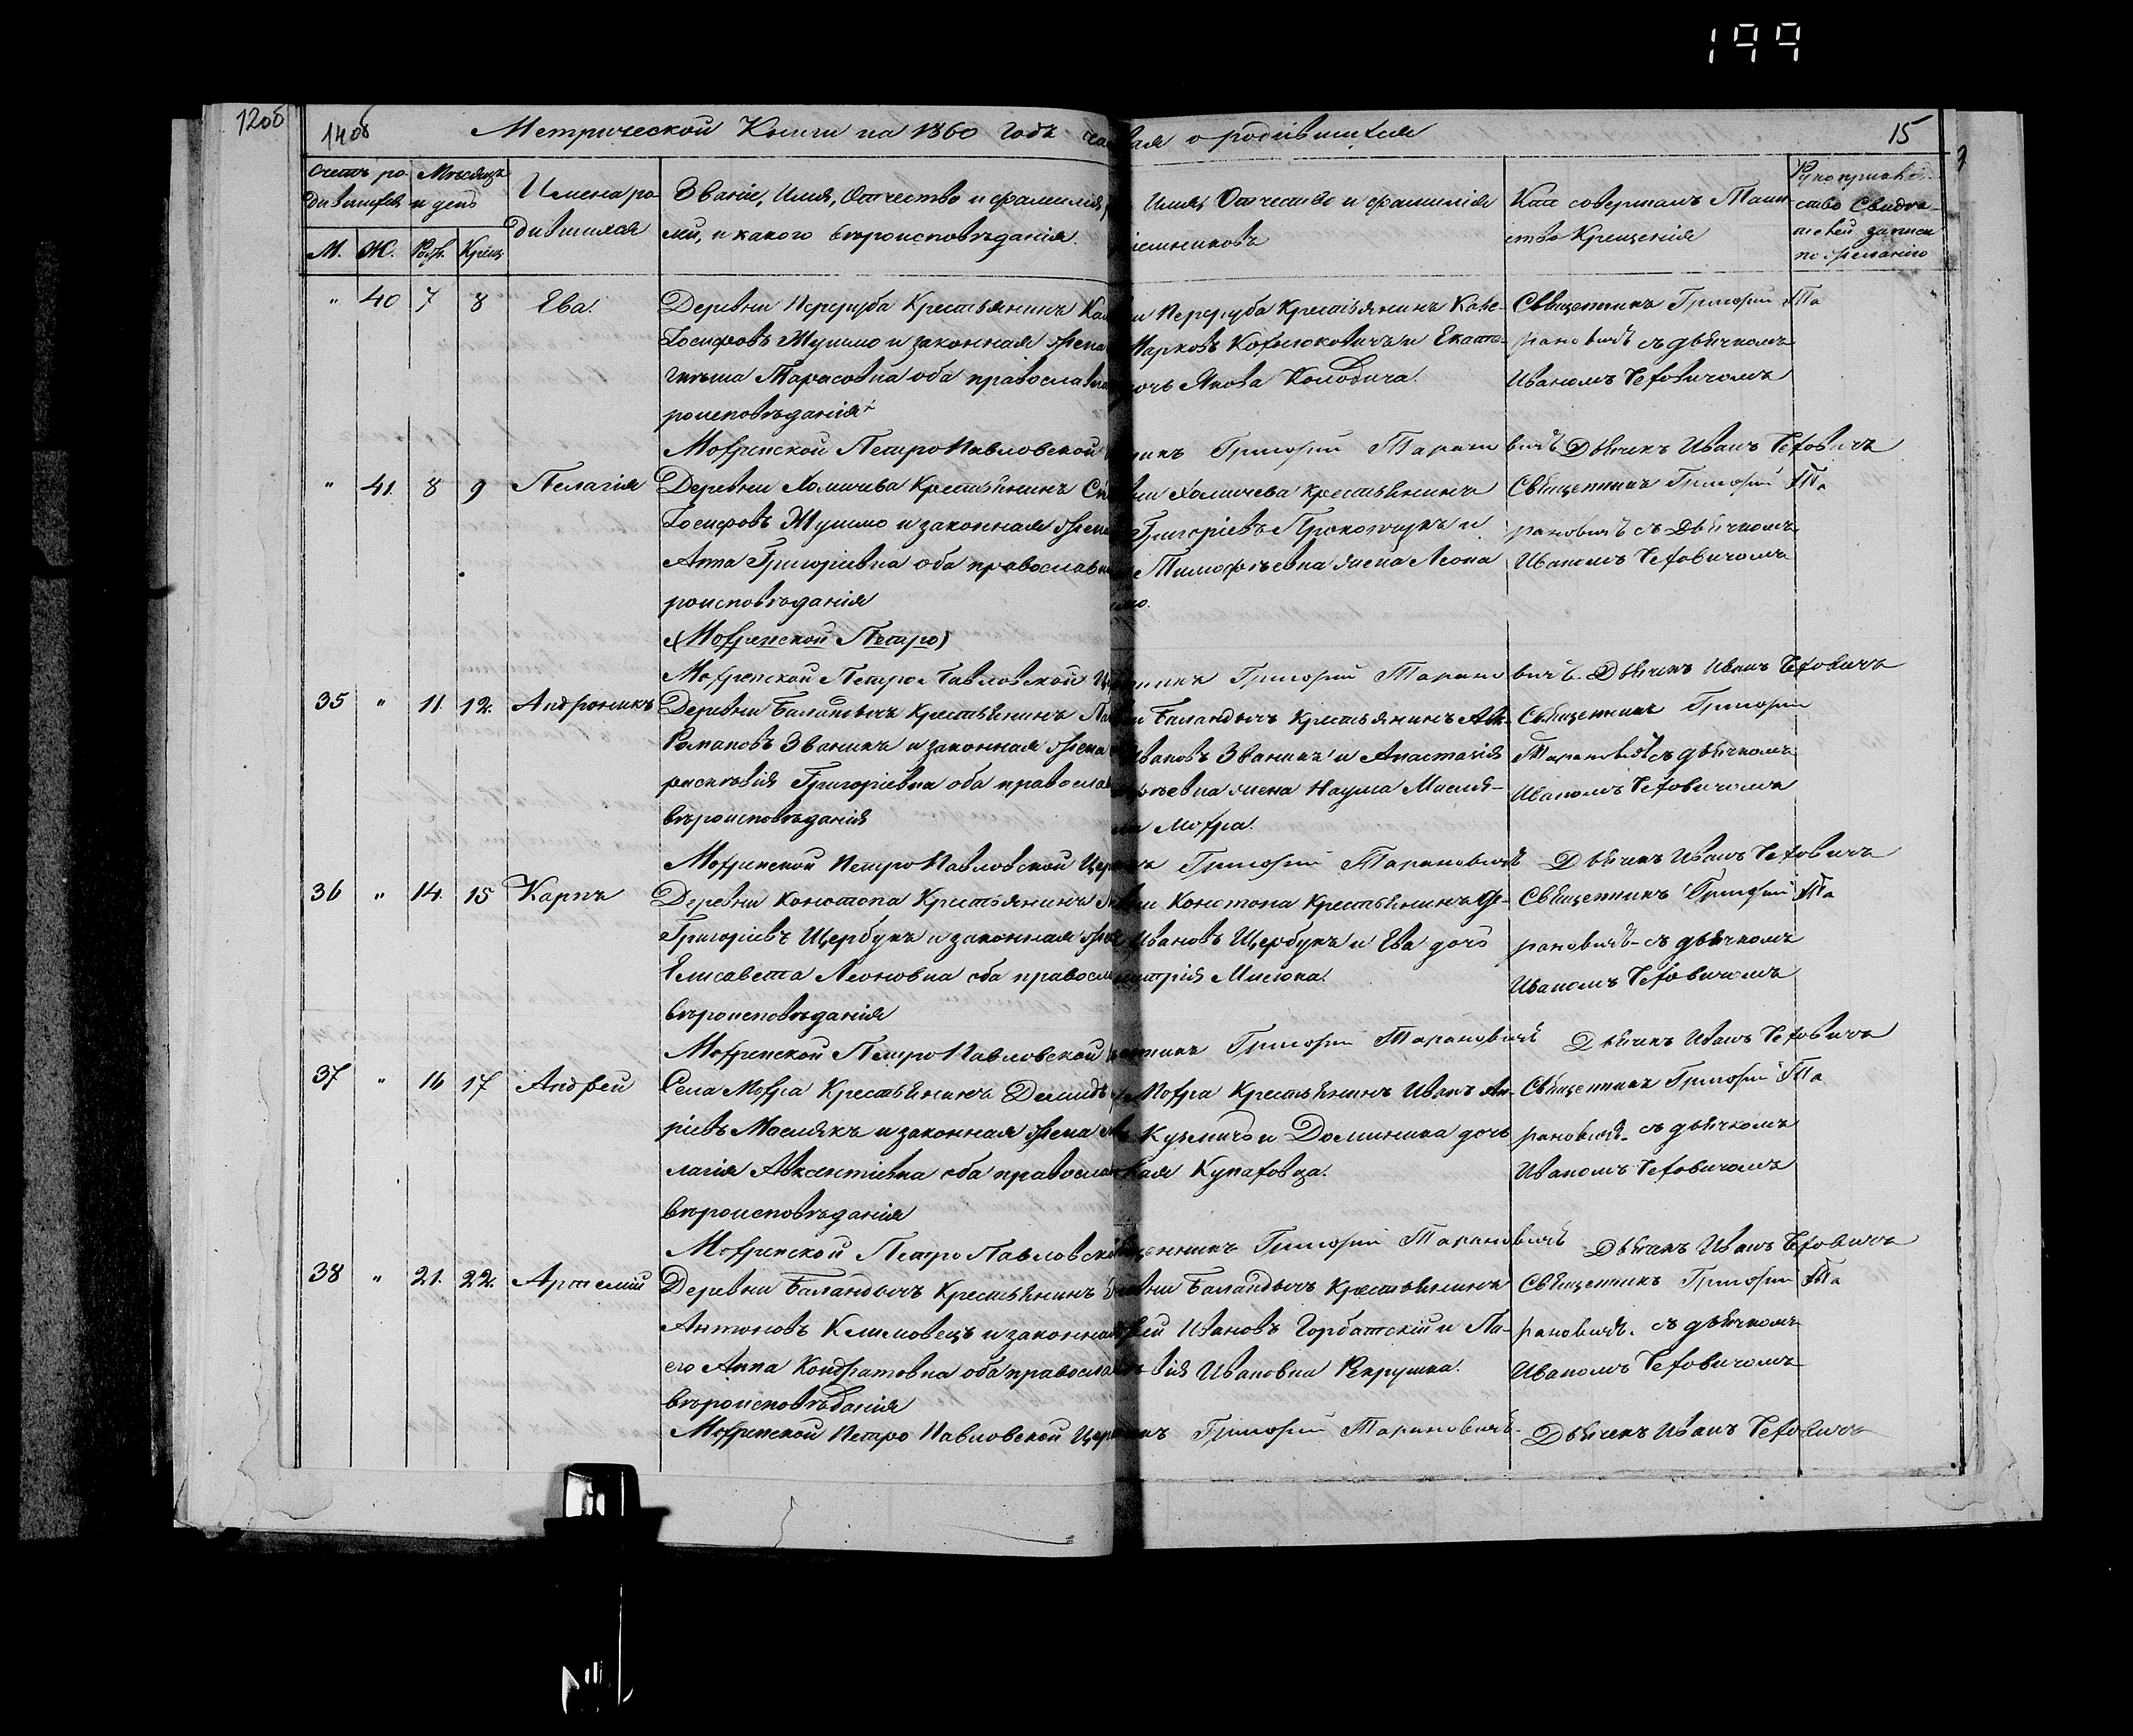 199
120б
140б Метрической Книги на 1860 годъ о родившихся 15
Счетъ ро-
дившихся
Мѣсяцъ
и день
М. Ж. Рожд. Крещ.
Имена ро
дившихся
Званіе, Имя, Отчество и фамилія
ми, и какого вѣроисповѣданія.
Имя, Отчество и фамилія
Кто совершалъ Таин
ство Крещенія
Рукоприклад-
ство Свидѣ-
телей записи
по желанію
" 40 7 8 Ева.
Деревни Переруба Крестьянинъ
Іосифовъ Жушмо и законная жена
Тарасовна оба православ
роисповѣданія
Переруба Крестьянинъ
Марковъ и Екате-
дочь Якова
Священникъ Григорій Та
рановичъ съ дьячкомъ
Иваномъ Чеховичомъ
Можренской Петро Павловской Григорій Таранови чъ Дьячекъ Иванъ Чеховичъ
" 41. 8 9 Пелагія
Деревни Холмичева Крестьянинъ
Іосифовъ Жушмо и законная жена
Анна Григоріевна оба православ
роисповѣданія
Холмичева Крестьянинъ
Григоріевъ Прокопчукъ и
Тимофѣевна жена Леона
Священникъ Григорій Та
рановичъ съ Дьячкомъ
Иваномъ Чеховичомъ
(Можренской Петро)
Можренской Петро Павловской Григорій Таранови чъ. Дьячекъ Иванъ Чеховичъ
35 " 11. 12. Андроникъ
Деревни Баландычъ Крестьянинъ
Романовъ Званикъ и законная жена
расковія Григоріевна оба православ
вѣроисповѣданія
Баландычъ Крестьянинъ
Ивановъ Званикъ и Анастасія
жена Наума
Можра.
Священникъ Григорій
Тарановичъ съ дьячкомъ
Иваномъ Чеховичомъ
Можренской Петро Павловской Цер Григорій Тарановичъ Дьячекъ Иванъ Чеховичъ
36 " 14. 15 Карпъ
Деревни Конотопа Крестьянинъ
Григоріевъ Щербукъ и законная жена
Елисавета Леоновна оба правосл
вѣроисповѣданія
Конотопа Крестьянинъ
Ивановъ Щербукъ и Ева дочь
митрія Мисюка.
Священникъ Григорій Та
рановичъ съ дьячкомъ
Иваномъ Чеховичомъ
Можренской Петро Павловской Григорій Тарановичъ Дьячекъ Иванъ Чеховичъ
37 " 16 17 Андрей
Села Можра Крестьянинъ Демидъ
ріевъ Маслякъ и законная жена
лагія Авксентіевна оба православ
вѣроисповѣданія
Можра Крестьянинъ Иванъ Ан-
Кузмичъ и Доминика дочь
Священникъ Григорій Та
рановичъ съ дьячкомъ
Иваномъ Чеховичомъ
Можренской Петро Павловск Григорій Тарановичъ Дьячекъ Иванъ Чеховичъ
38 " 21. 22. Артемій
Деревни Баландычъ Крестьянинъ
Антоновъ Климовецъ и законная
его Анна Кондратовна оба правосла
вѣроисповѣданія
Баландычъ Крестьянинъ
Ивановъ Горбатскій и Па-
вія Ивановна
Священникъ Григорій Та
рановичъ. съ дьячкомъ
Иваномъ Чеховичомъ
Можренской Петро Павловской Цер Григорій Тарановичъ. Дьячекъ Иванъ Чеховичъ